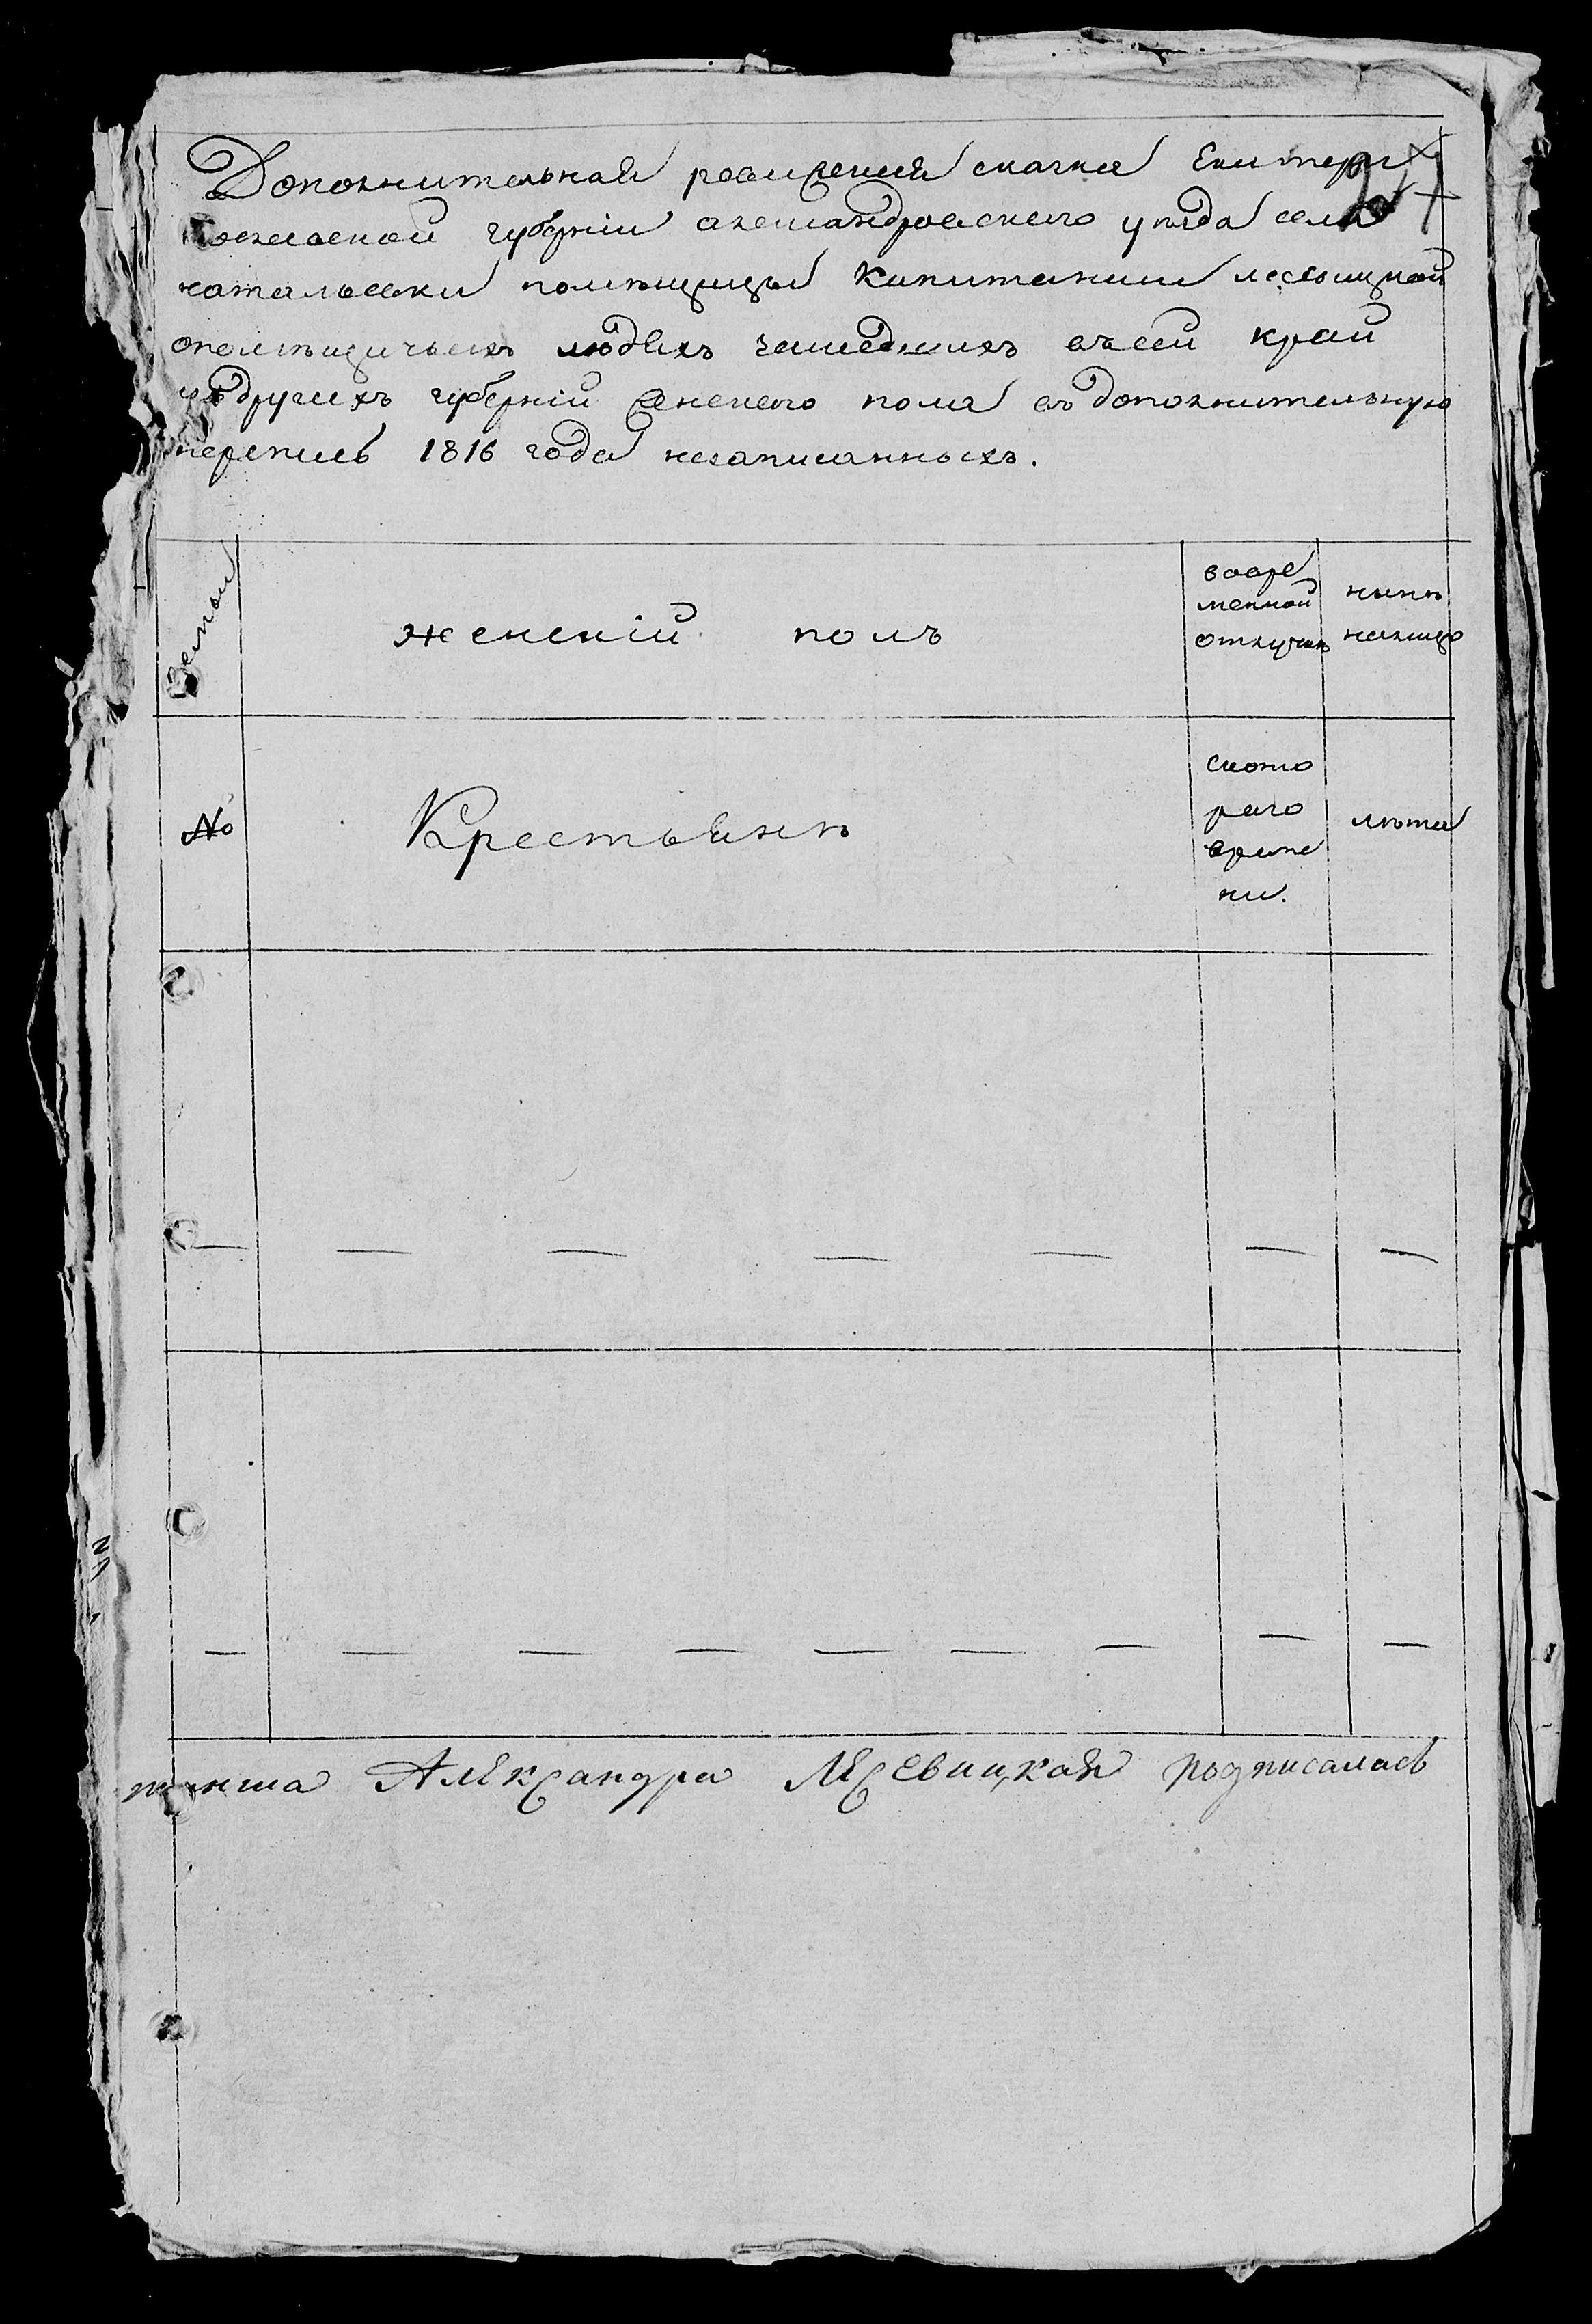 Дополнительная ревизская скаска Екатери
нославской губерніи александровскаго уѣзда села
натальевки помѣщицы Капитанши лесевицкой
опомѣщичьихъ людяхъ зашедшихъ въсей край
издругихъ губерній женскаго пола въ дополнительную
перепись 1816 года незаписанныхъ.
женскій полъ
вовре
менной
отлучкѣ
нынѣ
налицо
№
Крестьянѣ
ското
раго
време
ни.
лѣта
Александра Лесевицкая подписалась